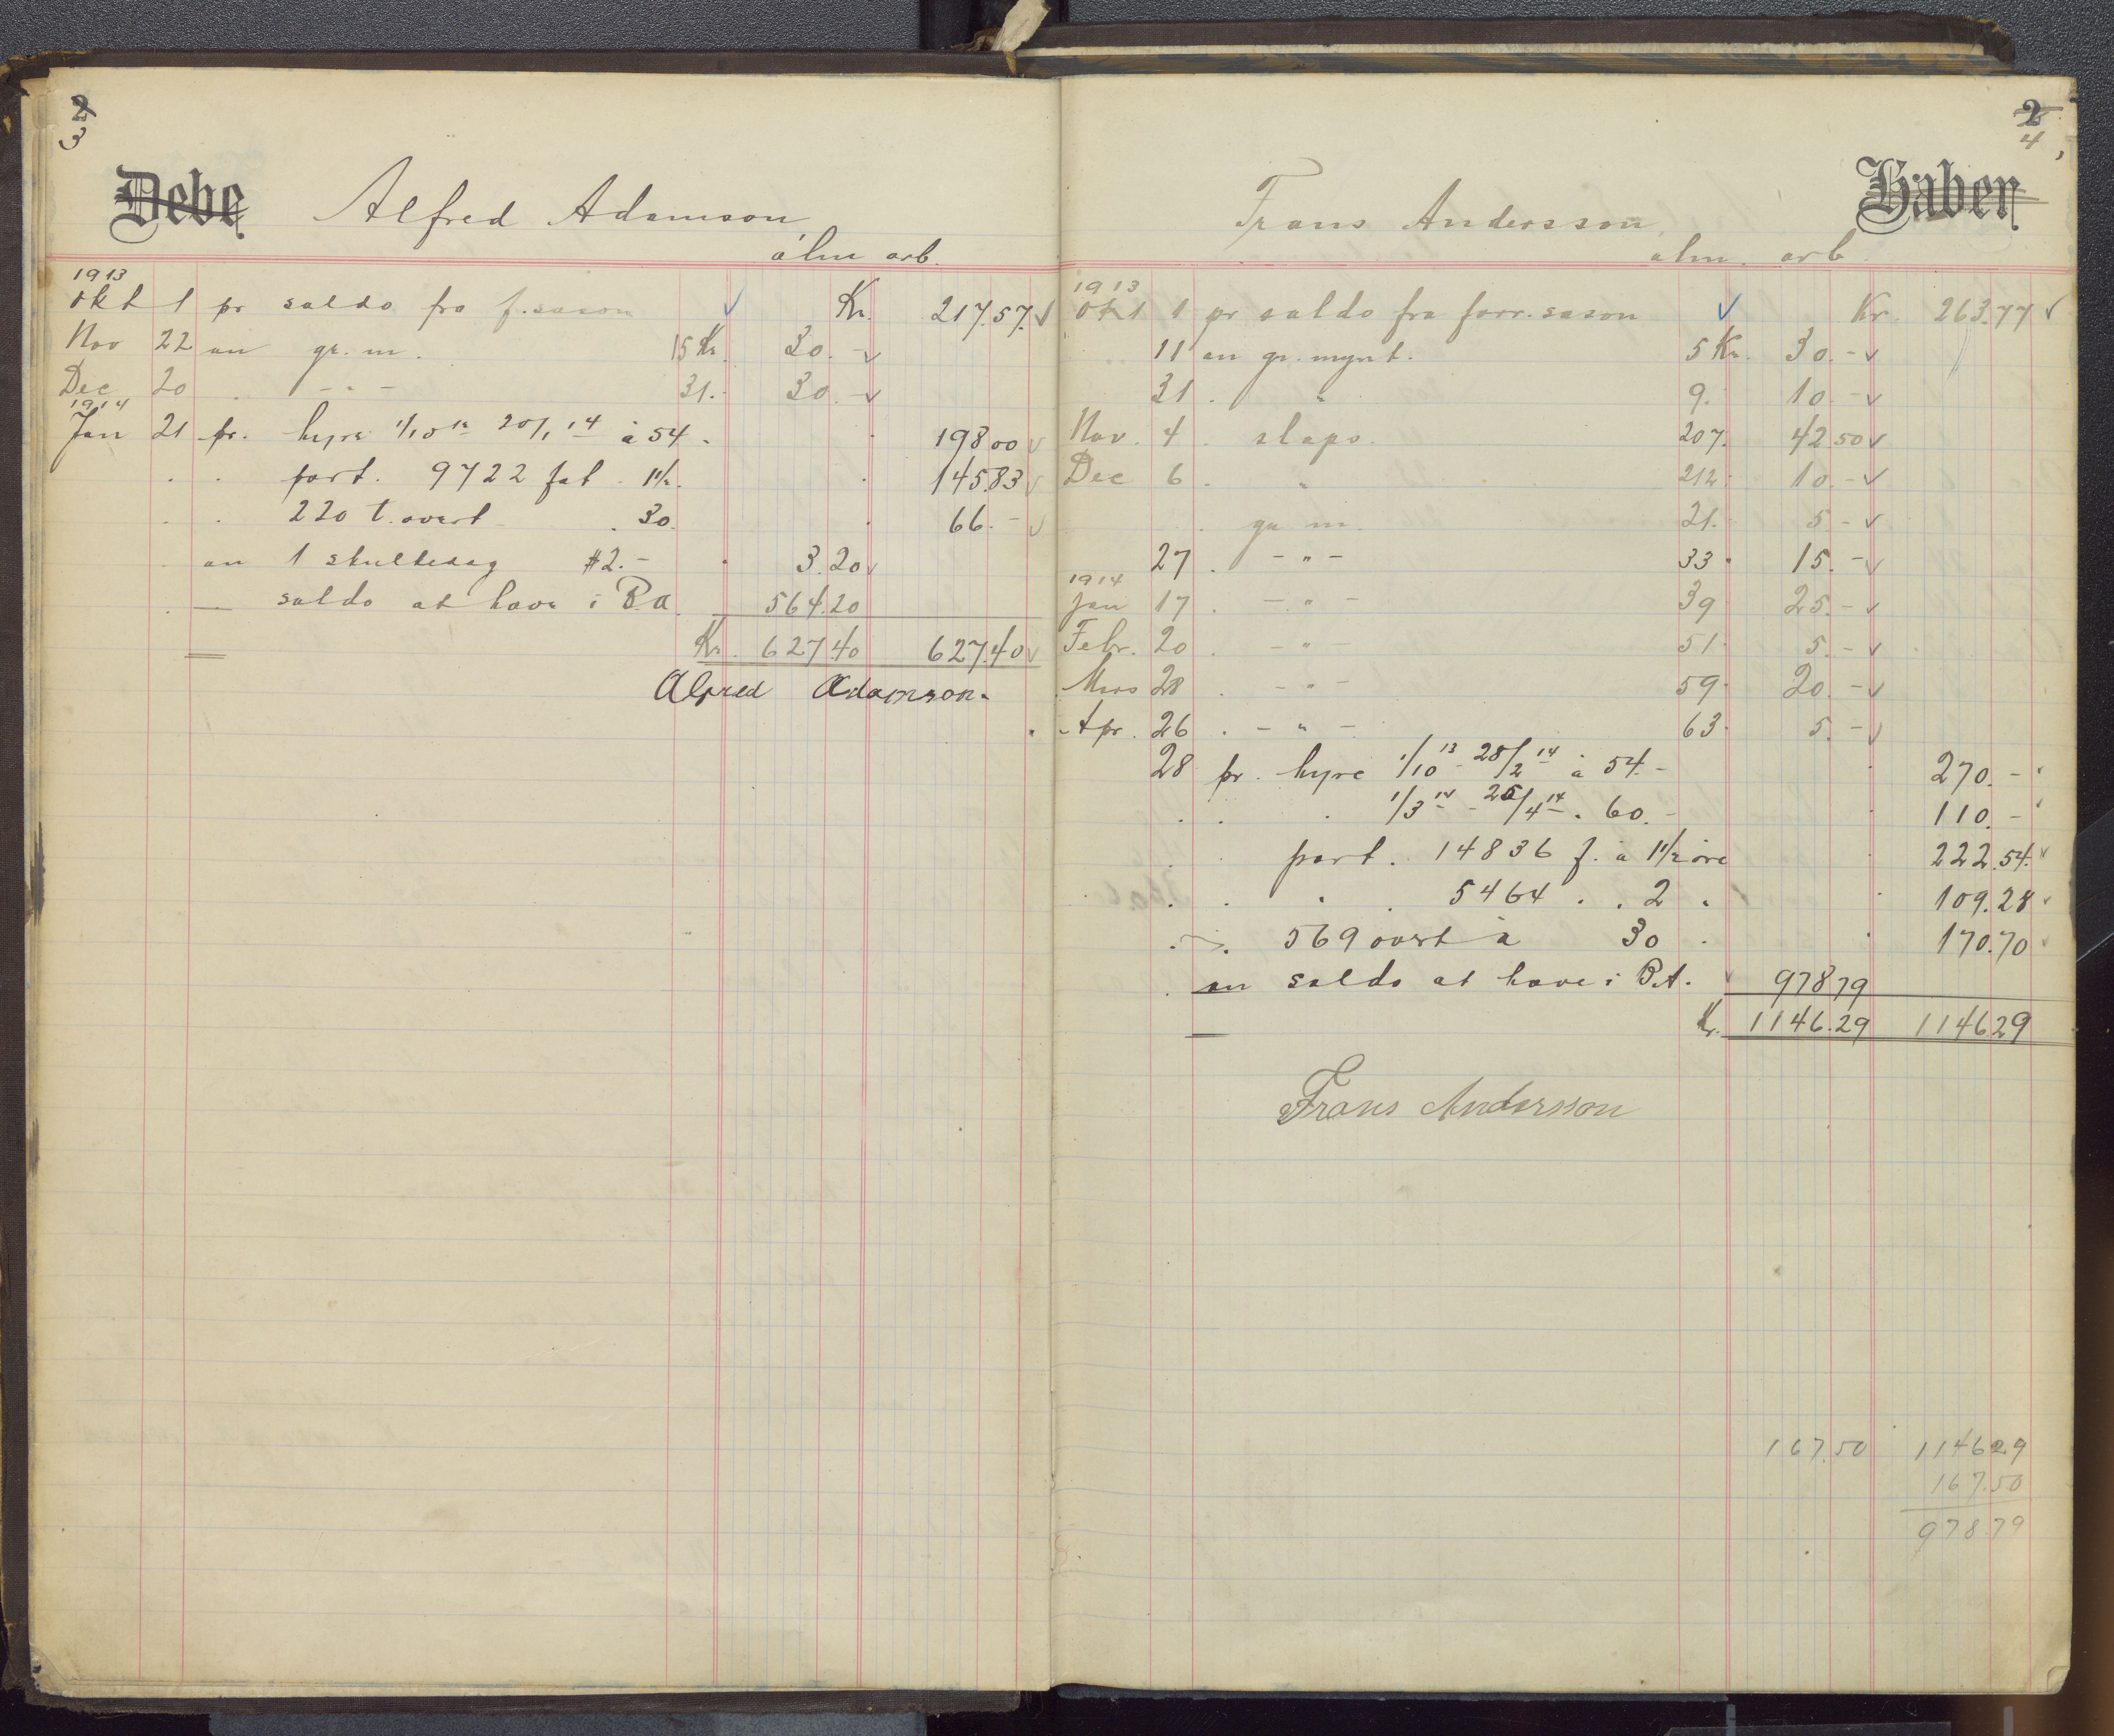 2
3
Debe Alfred Adamson
alm arb.
1913
Okt 1 pr saldo fra f. sason Kr. 217.57.
Nov 22 an gr. m. 15 Kr. 30.-
Dec 20 . - " - 31. 30.-
1914
Jan 21 pr. hyre 1/10 13 20/1 14 à 54. 198 00
. . part. 9722 fat . 1 1/2. 145.83
. . 220 t. overt . 30. 66.-
. an 1 skulltesag #2.- 3.20
. — saldo at have i B.A. 564.20
Kr. 627 40 627.40
Alfred Adamson.
2
4
Frans Andersson Haber
alm. arb.
1913
Okt 1 pr saldo fra forr. sason Kr. 263.77
11 an gr. mynt. 5 Kr. 30.-
31 . " 9. 10.-
Nov. 4 . slapo. 207. 42 50
Dec 6 . " 212. 10.-
. gr. m. 21. 5.-
27 . - " - 33. 15.-
1914
Jan 17 . - " - 39 25.-
Febr. 20 . - " - 51. 5.-
Mars 28 . - " - 59. 20.-
Apr. 26 . - " - 63. 5.-
28 pr. hyre 1/10 13 - 28/2 14 à 54.- 270.-
. . . 1/3 14 - 25/4 14 . 60.- 110.-
. . part. 14836 f. à 1 1/2 øre 222.54.
. . . . 5464 . . 2 . 109.28
. . 569 overt à 30 . 170.70
. an saldo at have i B.A. 978 79
Kr. 1146.29 1146 29
Frans Andersson
167.50 1146 29
167.50
978 79